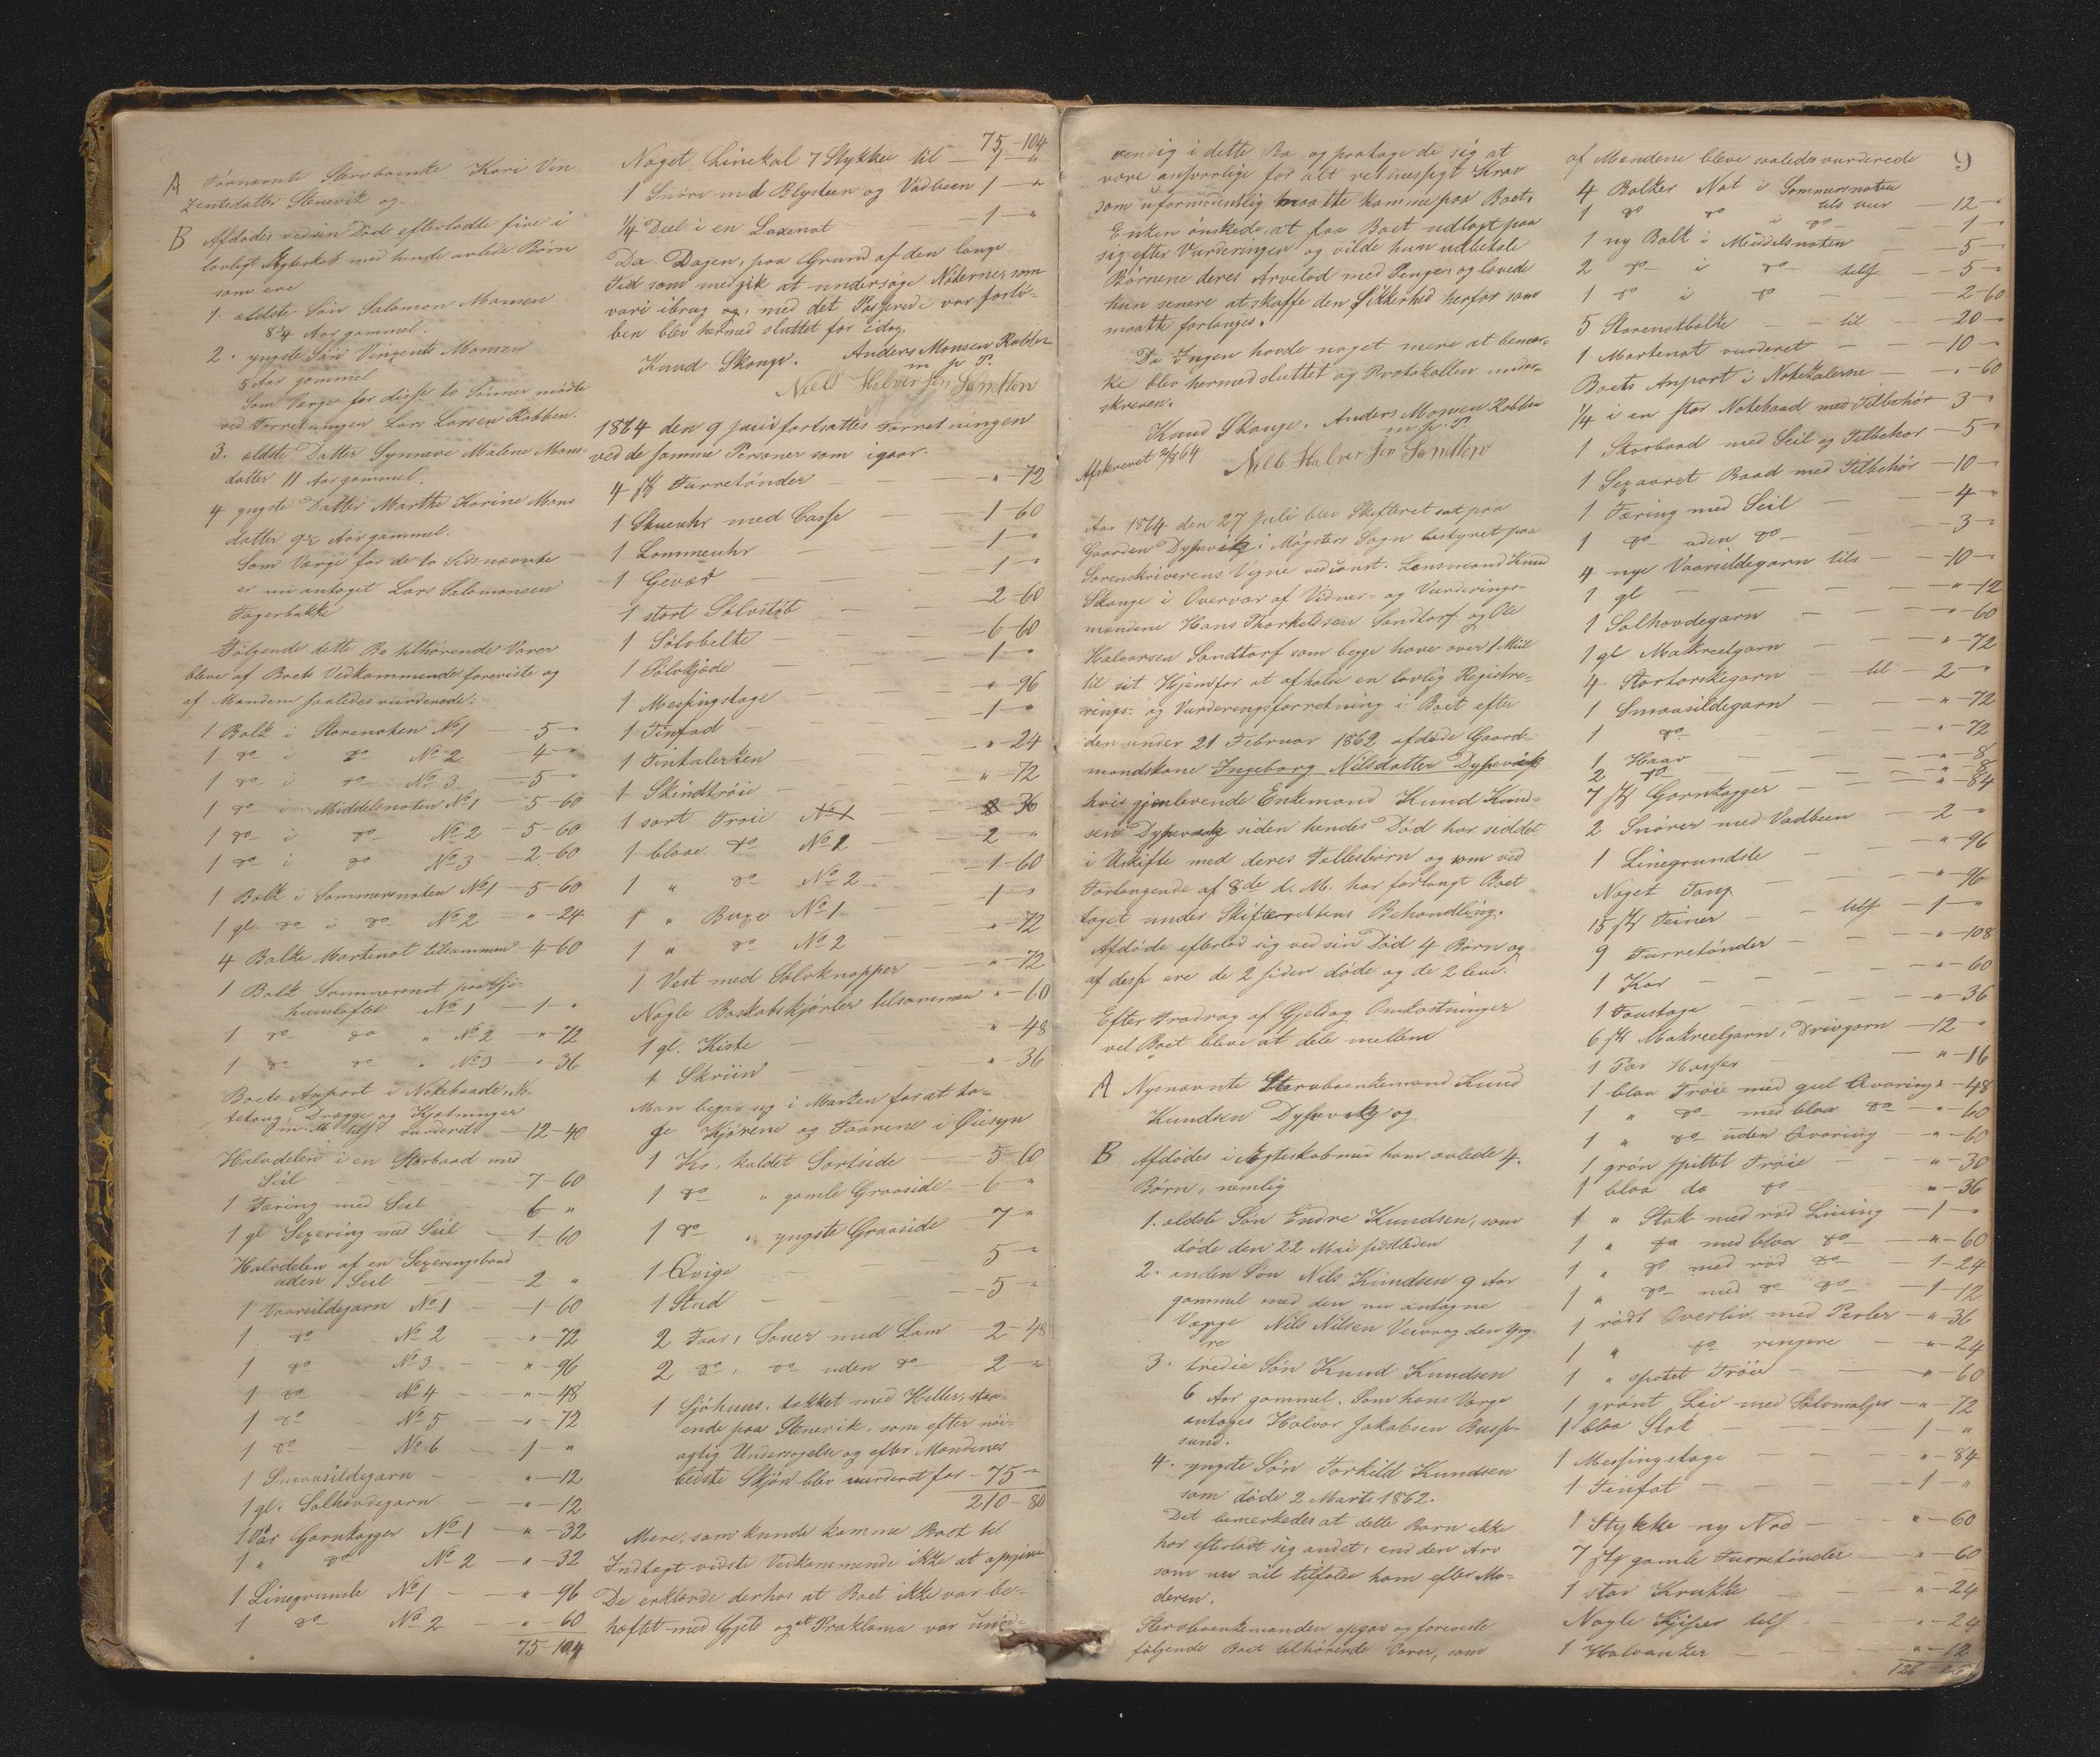 A Førnævnte Stervboenke Kari Vin-
zentsdatter Stenevik og
B Afdødes ved sin Død efterladte fire i
lovligt Ægteskab med hende avlede Børn
som ere
1. ældste Søn Salomon Monsen
8¼ Aar gammel.
2. yngste Søn Vingents Monsen
5 Aar gammel
Som Værge for disse to Sønner mødte
ved Forretningen Lars Larsen Robben.
3. ældste Datter Synneve Malene Mons-
datter 11 Aar gammel.
4 yngste Datter Marthe Karine Mons
datter 9½ Aar gammel.
Som Værge for de to Sidsnævnte
er nu antaget Lars Salomonsen
Fagerbakke
Følgende dette Bo tilhørende Varer
bleve af Boets Vedkommende foreviste og
af Mændene saaledes vurderede:
1 Balk i Storenoten No 1 — 5 — "
1 do i do No 2 4 — "
1 do i do No 3 — 5 — "
1 do i Middelsnoten No 1 — 5 — 60
1 do i do No 2 — 5 — 60
1 do i do No 3 — 2 — 60
1 Balk i Sommernoten No 1 — 5 — 60
1 gl. do i do No 2 — " — 24
4 Balke Martenot tilsammen 4 — 60
1 Balk Sommernot paa Sjø-
huusloftet No 1 — 1 — "
1 do do " No 2 — " — 72
1 do do " No 3 — " — 36
Boets Anport i Notebaade, No-
tetoug, Drægge og Kjætninger
m. M. tils. vurderet — 12 — 40
Halvdelen i en Storbaad med
Seil — 7 — 60
1 Færing med Seil 6 "
1 gl Sexering med Seil — 1 — 60
Halvdelen af en Sexeringsbaad
uden Seil — 2 "
1 Vaarsildegarn No 1 — 1 — 60
1 do No 2 — " — 72
1 do No 3 — " — 96
1 do No 4 — " — 48
1 do No 5 — " — 72
1 do No 6 — 1 — "
1 Smaasildegarn — " — 12
1 gl. Salhovdegarn — " — 12
1 Par Garnkagger No 1 — " — 32
1 " do No 2 — " — 32
1 Linegrunsle No 1 — " — 96
1 do No 2 — " — 60
75 — 104
75 — 104
Noget Linekal 7 Stykker til — 1 — "
1 Snøre med Blysteen og Vadbeen 1 — "
¼ Deel i en Laxenot — 1 — "
Da Dagen, paa Grund af den lange
Tid som medgik at undersøge Nøterne, som
vare ibrug og, med det Passerede var forlø-
ben blev hermed sluttet for idag.
Knud Skauge. Anders Monsen Robben
m. p. P.
Niels Halversen Sandtorv
1864 den 9 Juni fortsattes Forretningen
ved de samme Personer som igaar.
4 stk Turretønder — " — 72
1 Stueuhr med Casse — 1 — 60
1 Lommeuhr — 1 — "
1 Gevær — 1 — "
1 stort Sølvstøb — 2 — 60
1 Sølvbelte — 6 — 60
1 Sølvkjæde — 1 — "
1 Messingstage " — 96
1 Tinfad — 1 — "
1 Tintalerken — " — 24
1 Skindtrøie — " — 72
1 sort Trøie No 1 — 36
1 blaae do No 1 — 2 — "
1 " do No 2 — 1 — 60
1 " Buxe No 1 — 1 — "
1 " do No 2 " — 72
1 Vest med Sølvknapper — " — 72
Nogle Boskabskjørler tilsammen " — 60
1 gl. Kiste — " — 48
1 Skriin — " — 36
Man begav sig i Marken for at ta-
ge Kjørene og Faarene i Øiesyn
1 Ko, kaldet Sortside — 5 — 60
1 do " gamle Graaside — 6 — "
1 do " yngste Graaside — 7 — "
1 Qvige 5 — "
1 Stud — 5 — "
2 Faar, Souer med Lam 2 — 48
2 do, do uden do 2 — "
1 Sjøhuus, takket med Heller, staa-
ende paa Stenevik, som efter nøi-
agtig Undersøgelse og efter Mændenes
bedste Skjøn blev vurderet for — 75 — "
210 — 80
Mere, som kunde komme Boet til
Indtægt vidste Vedkommende ikke at opgive
De erklærde derhos at Boet ikke var be-
hæftet med Gjeld og at Proklama var unød-
vendig i dette Bo og paatoge de sig at
være ansvarlige for alt retmessigt Krav
som uformodentlig maatte komme paa Boet.
Enken ønskede, at faa Boet udlagt paa
sig efter Vurderingen og vilde hun udbetale
Børnene deres Arvelod med Penge og lovede
hun senere at skaffe den Sikkerhed herfor som
maatte forlanges.
Da Ingen havde noget mere at bemær-
ke blev hermed sluttet og Protokollen under-
skreven.
Knud Skauge. Anders Monsen Robben
m. p. P.
Afskrevet 2/8 64 Niels Halversen Sandtorv
Aar 1864 den 27 Juli blev Skifteret sat paa
Gaarden Dyssevik i Møgsters Sogn bestyret paa
Sorenskriverens Vegne ved const. Lensmand Knud
Skauge i Overvær af Vidner- og Vurderings-
mændene Hans Thorkildsen Sandtorf og Ole
Halvorsen Sandtorf som begge have over 1 Miil
til sit Hjem for at afholde en lovlig Registre-
rings- og Vurderingsforretning i Boet efter
den under 21 Februar 1862 afdøde Gaard-
mandskone Ingeborg Nilsdatter Dyssevik
hvis gjenlevende Enkemand Knud Knud-
sen Dyssevik siden hendes Død har siddet
i Uskifte med deres Fellesbørn og som ved
Forlangende af 8de d. M. har forlangt Boet
taget under Skifterettens Behandling.
Afdøde efterlod sig ved sin Død 4 Børn og
af dess ere de 2 siden døde og de 2 leve.
Efter Fradrag af Gjeld og Omkostninger
vil Boet blive at dele mellem
A Nysnævnte Stervboenkemand Knud
Knudsen Dyssevik og
B Afdødes i Ægteskab med ham avlede 4.
Børn, nemlig
1. ældste Søn Endre Knudsen, som
døde den 22 Mai sidstleden
2. anden Søn Nils Knudsen 9 Aar
gammel med den nu antagne
Værge Nils Nilsen Veivaag den yng-
re
3. tredie Søn Knud Knudsen
6 Aar gammel. Som hans Værge
antages Halvor Jakobsen Busse-
sund.
4. yngste Søn Torkild Knudsen
som døde 2 Marts 1862.
Det bemærkedes at dette Barn ikke
har efterladt sig andet, end den Arv
som nu vil tilfalde ham efter Mo-
deren.
Stervboenkemanden opgav og foreviste
følgende Boet tilhørende Varer, som
9
af Mændene bleve saaledes vurderede
4 Balker Not i Sommernoten
tils vur — 12 — "
1 do do i do — 1 — "
1 ny Balk i Middelsnoten — 5 — "
2 do i do tils — 5 — "
1 do i do — 2 — 60
5 Storenotbalke — til — 20 — "
1 Martenot vurderet — 10 — "
Boets Anport i Notekalerne — " — 60
¼ i en stor Notebaad med Tilbehør — 3 — "
1 Storbaad med Seil og Tilbehør — 5 — "
1 Sexaaret Baad med Tilbehør — 10 — "
1 Færing med Seil — 4 — "
1 do uden do — 3 — "
4 nye Vaarsildegarn tils — 10 — "
1 gl — " — 12
1 Salhovdegarn — " — 60
1 gl Makreelgarn — " — 72
4 Stortorskegarn — til — 2 — "
1 Smaasildegarn — " — 72
1 do " — 72
1 Haav — " — 8
2 do — " — 8
7 stk Garnkagger — " — 84
2 Snører med Vadbeen — 2 — "
1 Linegrundsle — " — 96
Noget Toug — " — 96
15 stk Teiner — tils — 1 — "
9 Turretønder — " — 108
1 Kar — " — 60
1 Foustage — " — 36
6 stk Makreelgarn, Drivgarn — 12 — "
1 Par Hosser — " — 16
1 blaa Trøie med gul Qvaring " — 48
1 " do med blaa do — " — 60
1 " do uden Qvaring — " — 60
1 grøn spittet Trøie — " — 30
1 blaa do do " — 36
1 " Stak med rød Liining — 1 — "
1 " do med blaa do — " — 60
1 " do med rød do — 1 — 24
1 " do med do do — 1 — 12
1 rødt Overliv med Perler — " — 36
1 " do ringere " — 24
1 " spøtet Trøie — " — 60
1 grønt Liv med Sølvmaljer — " — 72
1 blaa Stak — 1 — "
1 Messingstage — " — 84
1 Tinfat — 1 — "
1 Stykke ny Nod — " — 60
7 stk gamle Turretønder — " — 60
1 stor Krukke — " — 24
Nogle Kjiper tils " — 24
1 Halvanker — " — 12
126 —